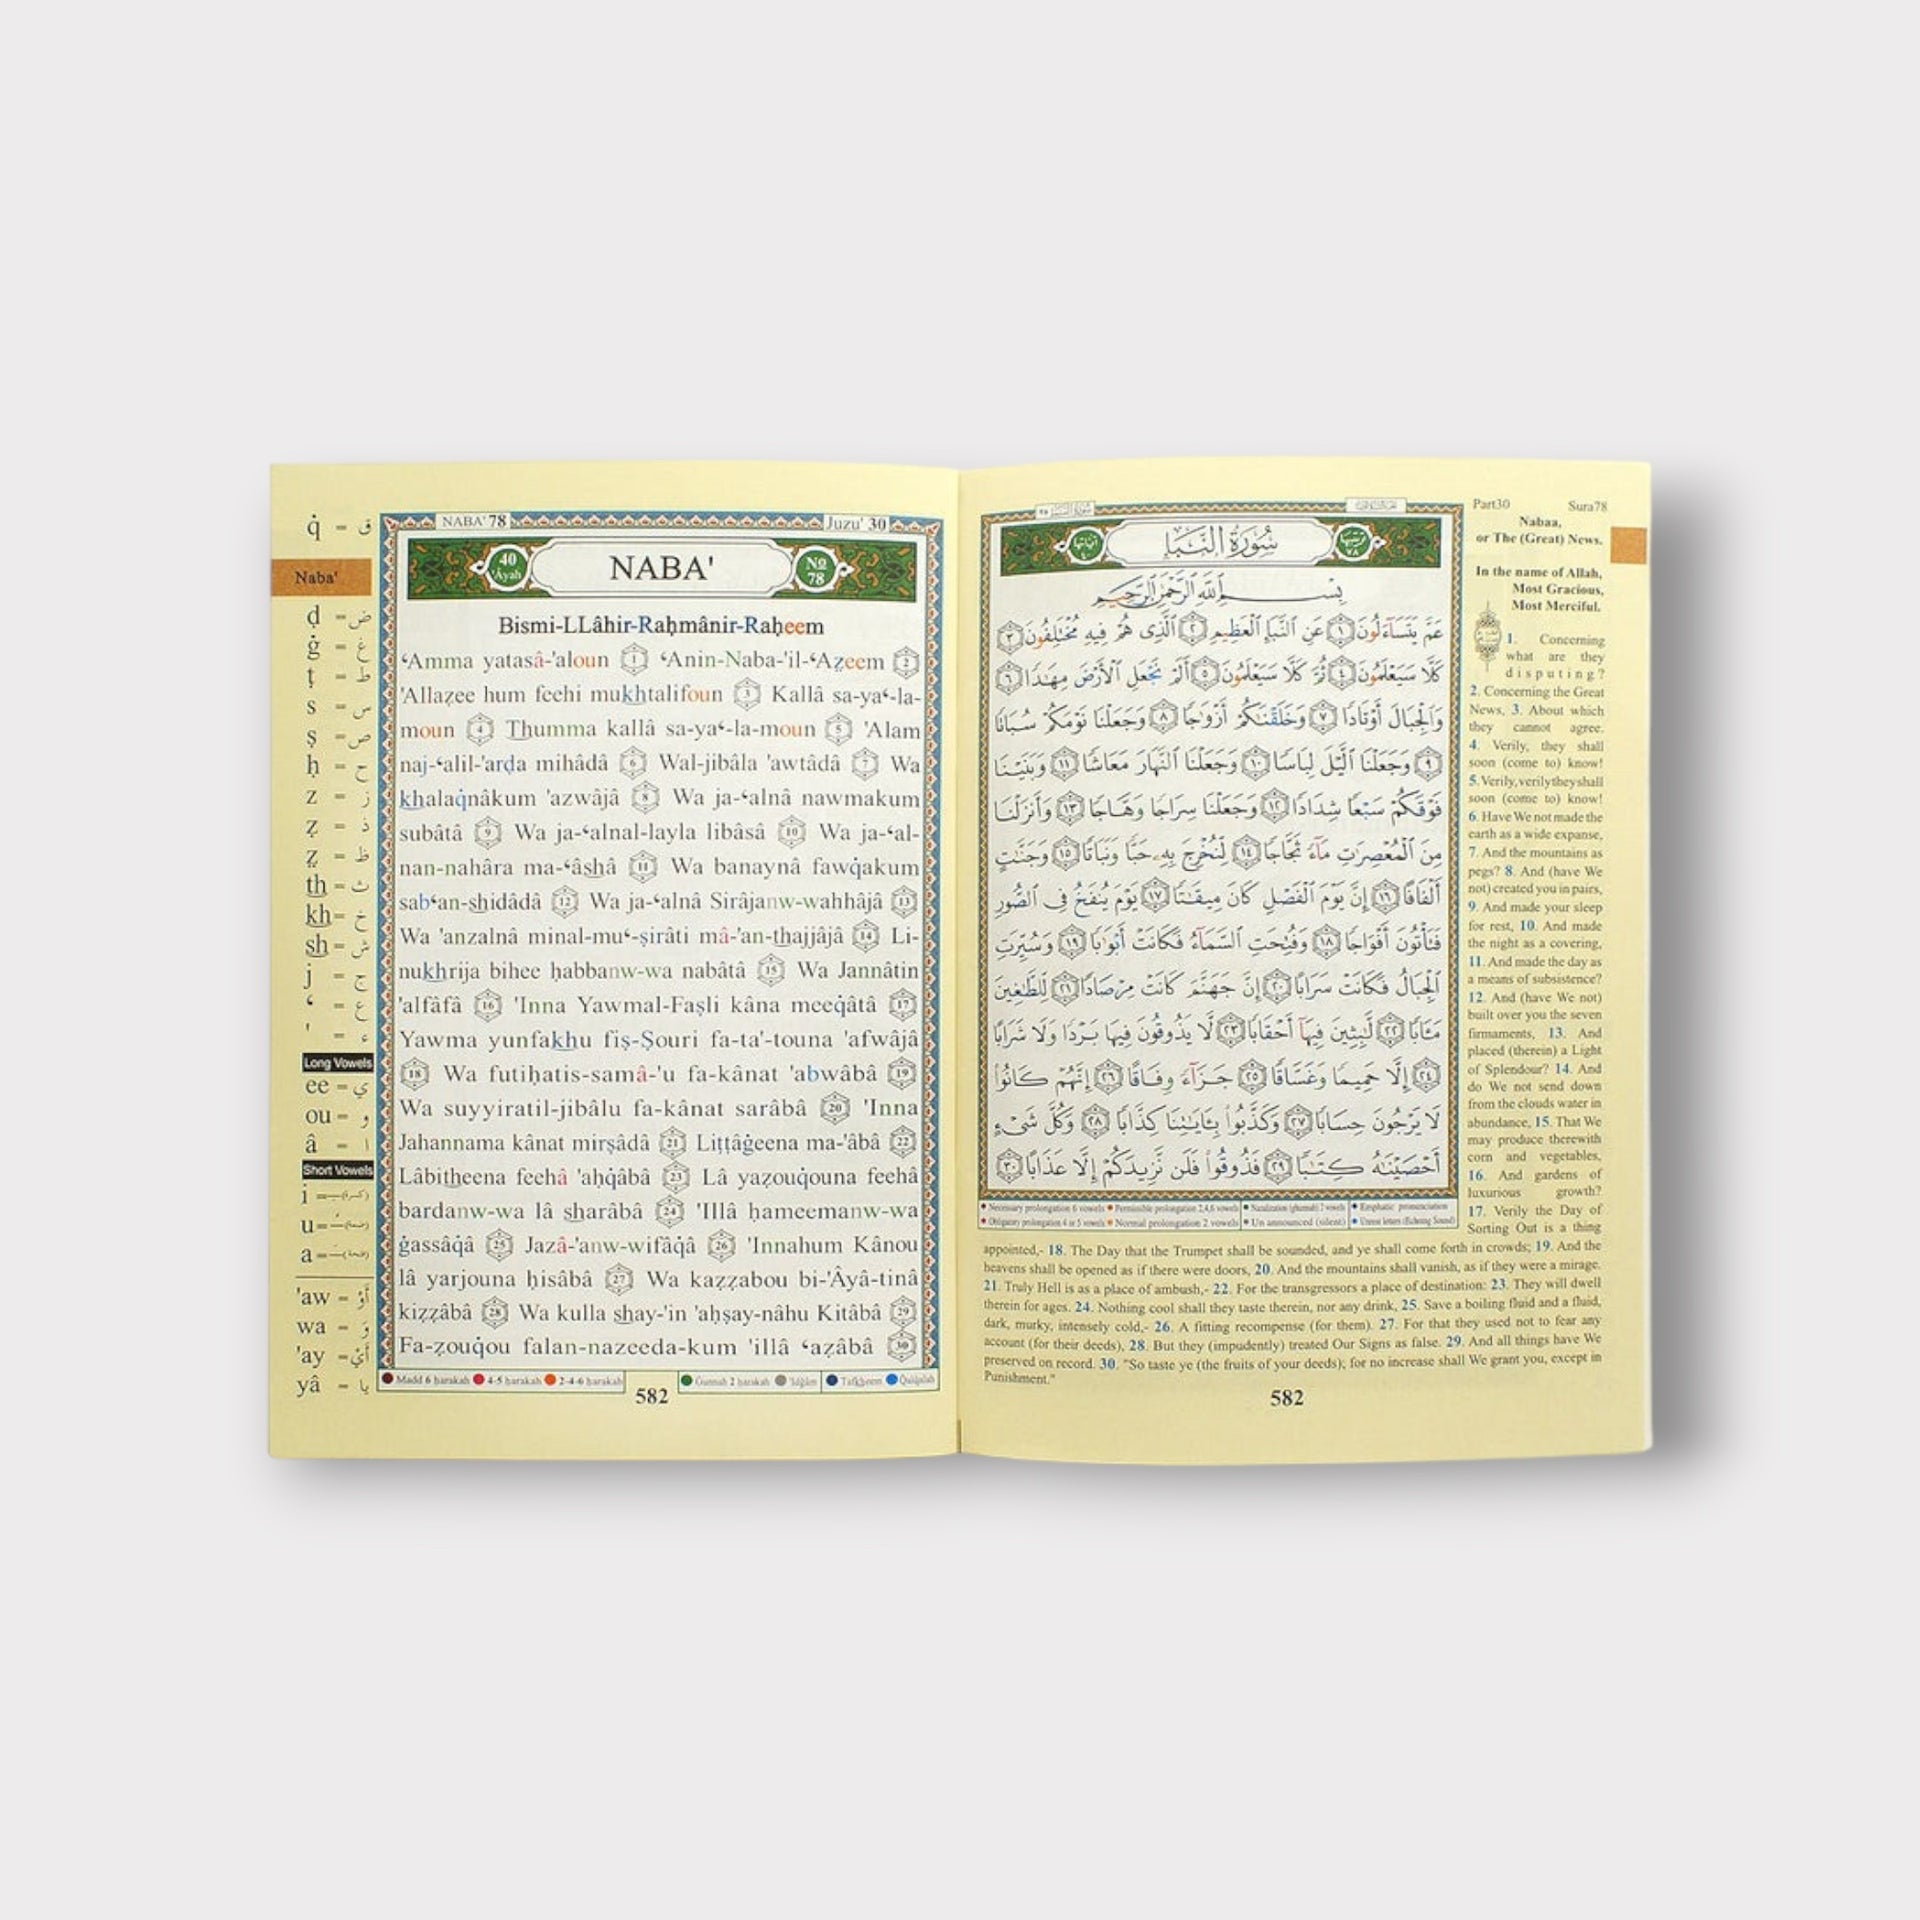 NABA' 78
Juzu' 30
40
'Âyah
NABA'
No
78
Bismi-LLâhir-Raḥmânir-Raḥeem
‘Amma yatasâ-'aloun 1 ‘Anin-Naba-'il-‘Aẓeem 2
'Allaẓee hum feehi mukhtalifoun 3 Kallâ sa-ya‘-la-
moun 4 Thumma kallâ sa-ya‘-la-moun 5 'Alam
naj-‘alil-'arḍa mihâdâ 6 Wal-jibâla 'awtâdâ 7 Wa
khalaq̇nâkum 'azwâjâ 8 Wa ja-‘alnâ nawmakum
subâtâ 9 Wa ja-‘alnal-layla libâsâ 10 Wa ja-‘al-
nan-nahâra ma-‘âshâ 11 Wa banaynâ fawq̇akum
sab‘an-shidâdâ 12 Wa ja-‘alnâ Sirâjanw-wahhâjâ 13
Wa 'anzalnâ minal-mu‘-ṣirâti mâ-'an-thajjâjâ 14 Li-
nukhrija bihee ḥabbanw-wa nabâtâ 15 Wa Jannâtin
'alfâfâ 16 'Inna Yawmal-Faṣli kâna meeq̇âtâ 17
Yawma yunfakhu fiṣ-Ṣouri fa-ta'-touna 'afwâjâ
18 Wa futiḥatis-samâ-'u fa-kânat 'abwâbâ 19
Wa suyyiratil-jibâlu fa-kânat sarâbâ 20 'Inna
Jahannama kânat mirṣâdâ 21 Liṭṭâġeena ma-'âbâ 22
Lâbitheena feehâ 'aḥq̇âbâ 23 Lâ yaẓouq̇ouna feehâ
bardanw-wa lâ sharâbâ 24 'Illâ ḥameemanw-wa
ġassâq̇â 25 Jazâ-'anw-wifâq̇â 26 'Innahum Kânou
lâ yarjouna ḥisâbâ 27 Wa kaẓẓabou bi-'Âyâ-tinâ
kiẓẓâbâ 28 Wa kulla shay-'in 'aḥṣay-nâhu Kitâbâ 29
Fa-ẓouq̇ou falan-nazeeda-kum 'illâ ‘aẓâbâ 30
Madd 6 ḥarakah 4-5 ḥarakah 2-4-6 ḥarakah
Ġunnah 2 ḥarakah 'Idġâm Tafkheem Qalqalah
582
q̇ = ق
Naba'
ḍ = ض
ġ = غ
ṭ = ط
s = س
ṣ = ص
ḥ = ح
z = ز
ẓ = ذ
ẓ = ظ
th = ث
kh = خ
sh = ش
j = ج
‘ = ع
' = ء
Long Vowels
ee = ي
ou = و
â = ا
Short Vowels
i = (كسرة)
u = (ضمة)
a = (فتحة)
'aw = أَوْ
wa = وَ
'ay = أَيْ
yâ = يا
سُورَةُ النَّبَإِ
آياتها
٤٠
ترتيبها
٧٨
بِسْمِ اللَّهِ الرَّحْمَٰنِ الرَّحِيمِ
عَمَّ يَتَسَآءَلُونَ ١ عَنِ النَّبَإِ الْعَظِيمِ ٢ الَّذِى هُمْ فِيهِ مُخْتَلِفُونَ ٣
كَلَّا سَيَعْلَمُونَ ٤ ثُمَّ كَلَّا سَيَعْلَمُونَ ٥ أَلَمْ نَجْعَلِ الْأَرْضَ مِهَٰدًا ٦
وَالْجِبَالَ أَوْتَادًا ٧ وَخَلَقْنَٰكُمْ أَزْوَٰجًا ٨ وَجَعَلْنَا نَوْمَكُمْ سُبَاتًا
٩ وَجَعَلْنَا الَّيْلَ لِبَاسًا ١٠ وَجَعَلْنَا النَّهَارَ مَعَاشًا ١١ وَبَنَيْنَا
فَوْقَكُمْ سَبْعًا شِدَادًا ١٢ وَجَعَلْنَا سِرَاجًا وَهَّاجًا ١٣ وَأَنزَلْنَا
مِنَ الْمُعْصِرَٰتِ مَآءً ثَجَّاجًا ١٤ لِّنُخْرِجَ بِهِۦ حَبًّا وَنَبَاتًا ١٥ وَجَنَّٰتٍ
أَلْفَافًا ١٦ إِنَّ يَوْمَ الْفَصْلِ كَانَ مِيقَٰتًا ١٧ يَوْمَ يُنفَخُ فِى الصُّورِ
فَتَأْتُونَ أَفْوَاجًا ١٨ وَفُتِحَتِ السَّمَآءُ فَكَانَتْ أَبْوَٰبًا ١٩ وَسُيِّرَتِ
الْجِبَالُ فَكَانَتْ سَرَابًا ٢٠ إِنَّ جَهَنَّمَ كَانَتْ مِرْصَادًا ٢١ لِّلطَّٰغِينَ
مَـَٔابًا ٢٢ لَّٰبِثِينَ فِيهَآ أَحْقَابًا ٢٣ لَّا يَذُوقُونَ فِيهَا بَرْدًا وَلَا شَرَابًا
٢٤ إِلَّا حَمِيمًا وَغَسَّاقًا ٢٥ جَزَآءً وِفَاقًا ٢٦ إِنَّهُمْ كَانُوا۟
لَا يَرْجُونَ حِسَابًا ٢٧ وَكَذَّبُوا۟ بِـَٔايَٰتِنَا كِذَّابًا ٢٨ وَكُلَّ شَىْءٍ
أَحْصَيْنَٰهُ كِتَٰبًا ٢٩ فَذُوقُوا۟ فَلَن نَّزِيدَكُمْ إِلَّا عَذَابًا ٣٠
Necessary prolongation 6 vowels Permissible prolongation 2,4,6 vowels Nazalization (ghunnah) 2 vowels Emphatic pronunciation
Obligatory prolongation 4 or 5 vowels Normal prolongation 2 vowels Un announced (silent) Unrest letters (Echoing Sound)
Part30 Sura78
Nabaa,
or The (Great) News.
In the name of Allah,
Most Gracious,
Most Merciful.
1. Concerning
what are they
disputing?
2. Concerning the Great
News, 3. About which
they cannot agree.
4. Verily, they shall
soon (come to) know!
5. Verily, verily they shall
soon (come to) know!
6. Have We not made the
earth as a wide expanse,
7. And the mountains as
pegs? 8. And (have We
not) created you in pairs,
9. And made your sleep
for rest, 10. And made
the night as a covering,
11. And made the day as
a means of subsistence?
12. And (have We not)
built over you the seven
firmaments, 13. And
placed (therein) a Light
of Splendour? 14. And
do We not send down
from the clouds water in
abundance, 15. That We
may produce therewith
corn and vegetables,
16. And gardens of
luxurious growth?
17. Verily the Day of
Sorting Out is a thing
appointed,- 18. The Day that the Trumpet shall be sounded, and ye shall come forth in crowds; 19. And the
heavens shall be opened as if there were doors, 20. And the mountains shall vanish, as if they were a mirage.
21. Truly Hell is as a place of ambush,- 22. For the transgressors a place of destination: 23. They will dwell
therein for ages. 24. Nothing cool shall they taste therein, nor any drink, 25. Save a boiling fluid and a fluid,
dark, murky, intensely cold,- 26. A fitting recompense (for them). 27. For that they used not to fear any
account (for their deeds), 28. But they (impudently) treated Our Signs as false. 29. And all things have We
preserved on record. 30. "So taste ye (the fruits of your deeds); for no increase shall We grant you, except in
Punishment."
582